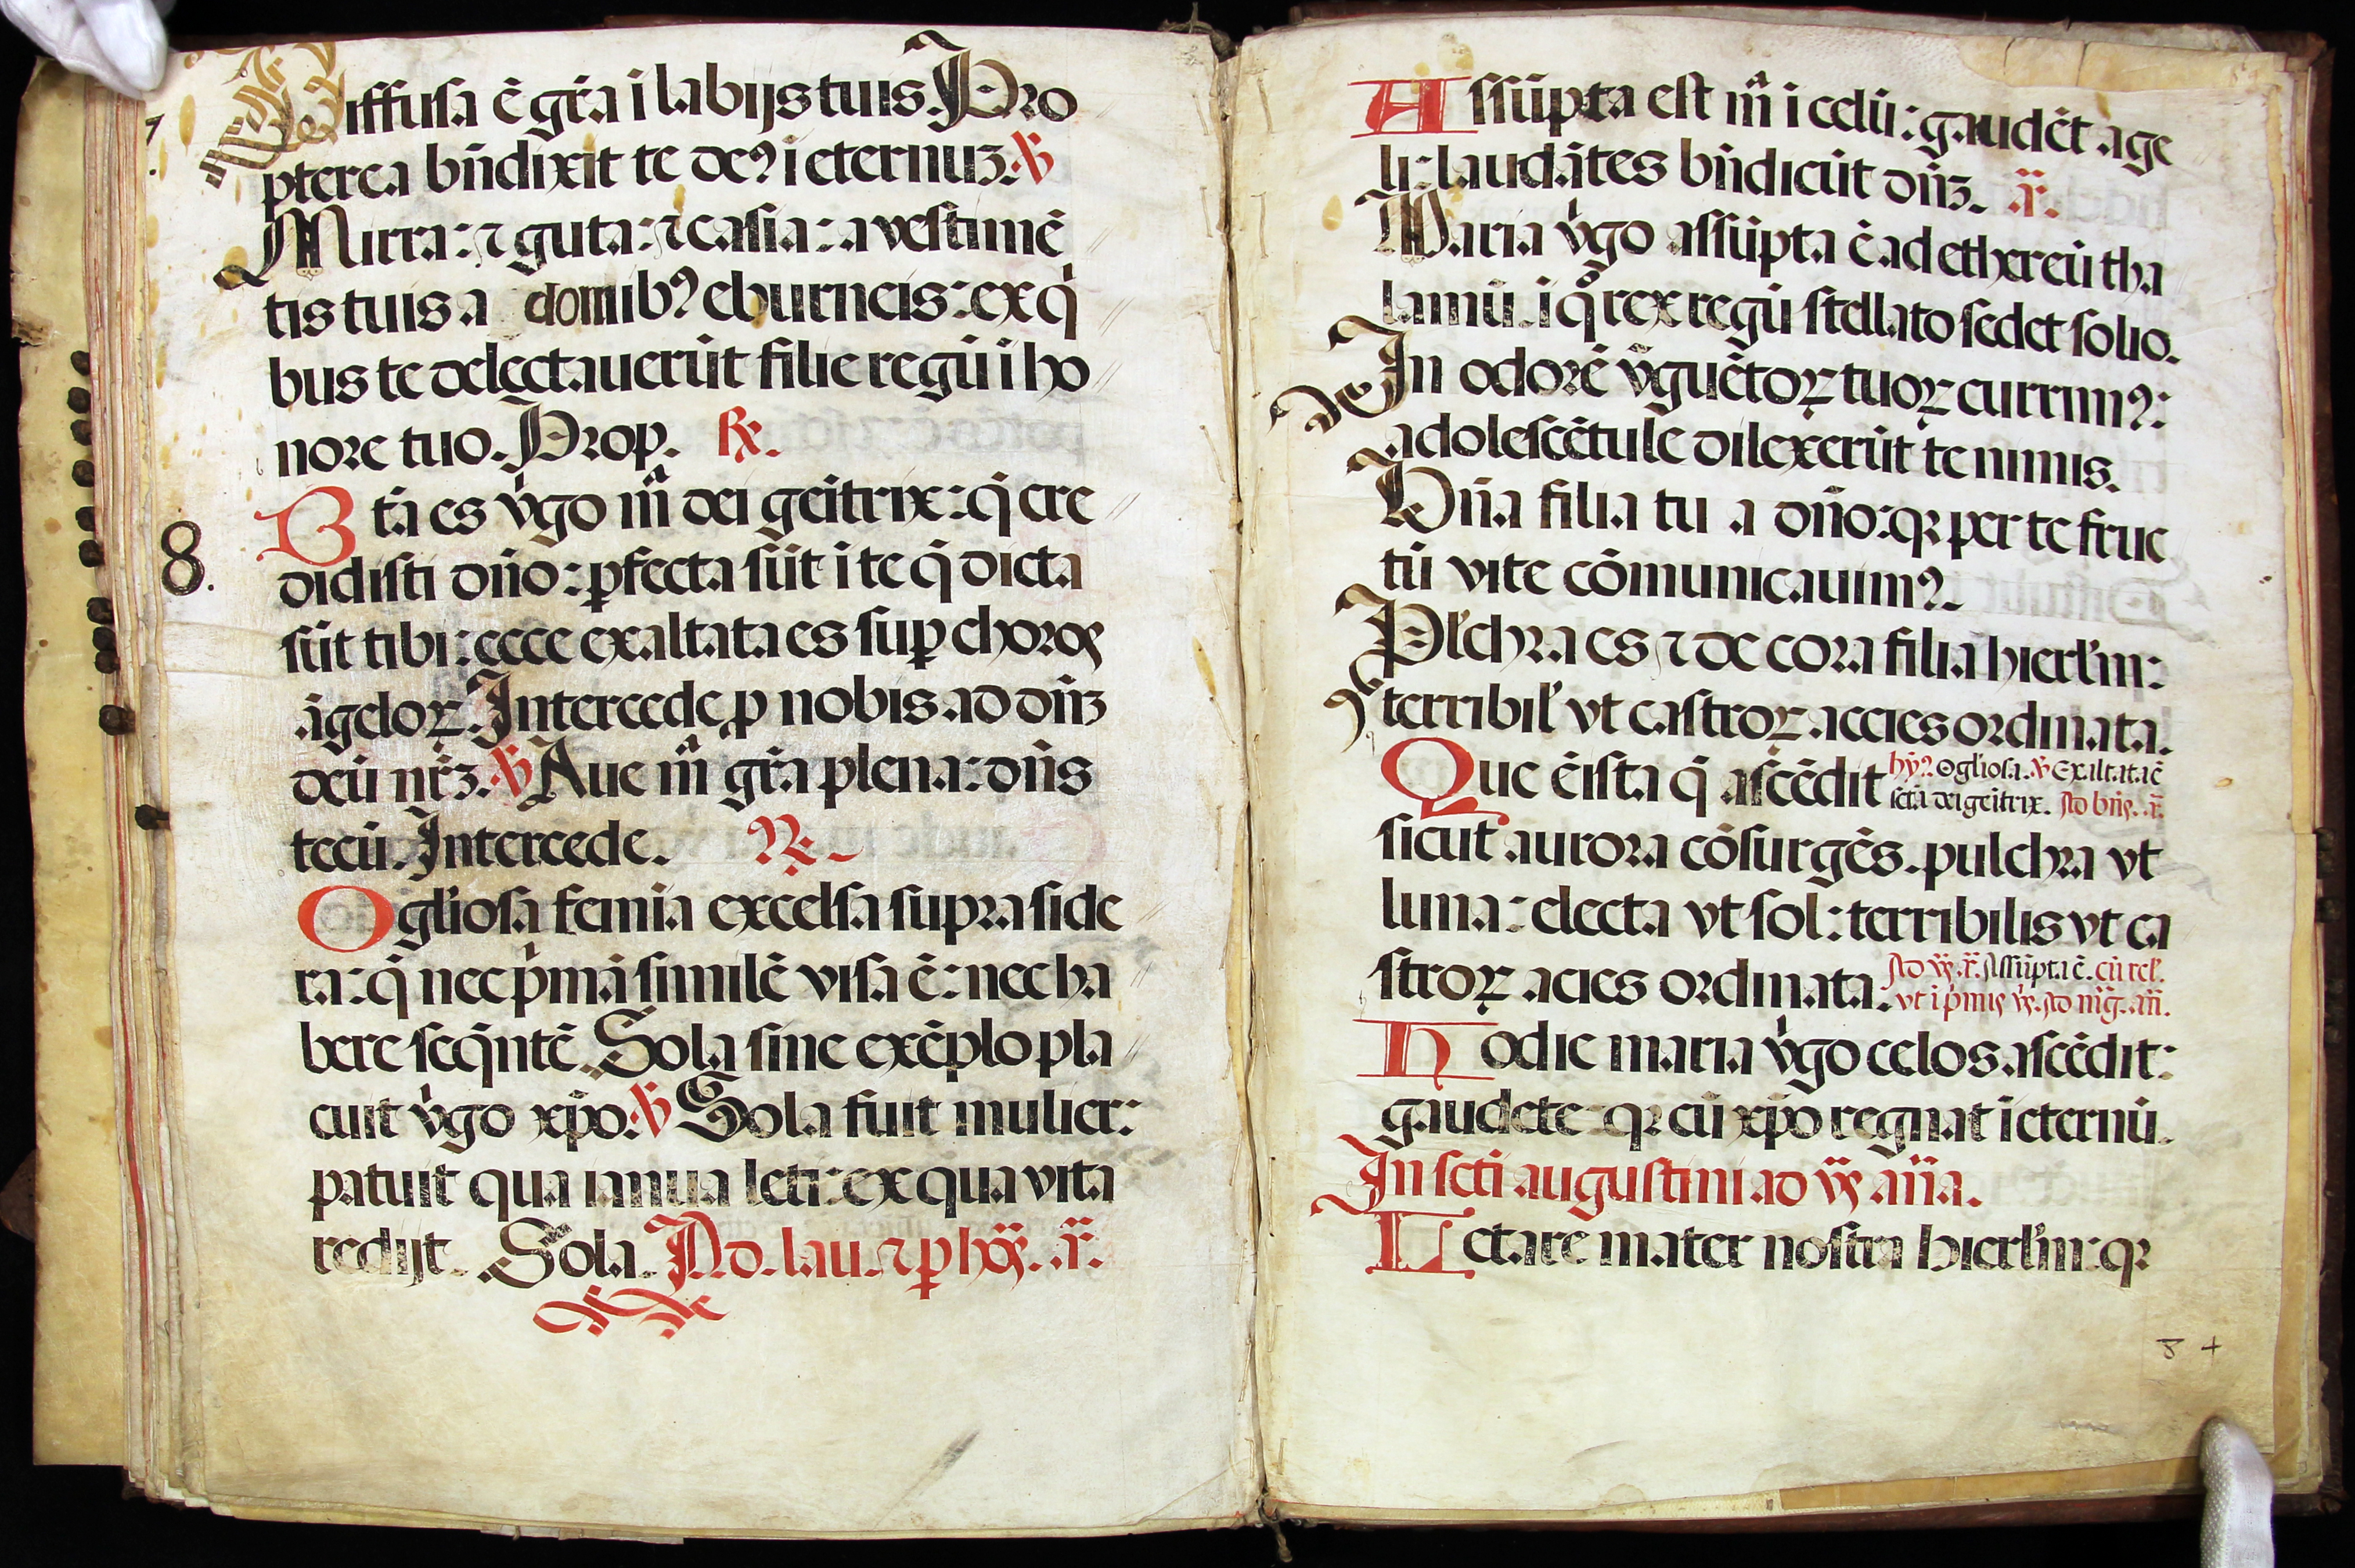 7.
Diffusa ē gr̄a ī labijs tuis. Pro
pterea bn̄dixit te deꝰ ī eternuꝫ. ℣
Mirra: ⁊ guta: ⁊ casia: a vestimē
tis tuis a domibꝰ eburneis: ex qͥ
bus te delectauerūt filie regū ī ho
nore tuo. Prop. ℞.
8.
Bt̄a es vͥgo mͣ dei geītrix: q̄ cre
didisti dn̄o: ꝑfecta sūt ī te q̄ dicta
sūt tibi: ecce exaltata es suꝑ choros
āgeloꝝ. Intercede ꝓ nobis ad dn̄ꝫ
deū nr̄ꝫ. ℣ Aue mͣ gr̄a plena: dn̄s
tecū. Intercede. ℞.
O gl̄iosa femīa excelsa supra side
ra: q̄ nec pͥmā similē visa ē: nec ha
bere seq̄ntē. Sola sine exēplo pla
cuit vͥgo xp̄o. ℣ Sola fuit mulier:
patuit qua ianua leti: ex qua vita
redijt. Sola. Ad. lau. ⁊ ꝑ ho͞ꝝ. a͞.
Assūpta est mͣ ī celū: gaudēt āge
li: laudātes bn̄dicūt dn̄ꝫ. a͞.
Maria vͥgo assūpta ē ad ethereū tha
lamū. ī qͦ rex regū stellato sedet solio.
In odorē vn̄guētoꝝ tuoꝝ currimꝰ:
adolescētule dilexerūt te nimis.
Bn̄a filia tu a dn̄o: qꝛ per te fruc
tū vite cōmunicauimꝰ.
Pl̄chra es ⁊ decora filia hierl̄m:
terribil̄ vt castroꝝ accies ordinata.
Que ē ista q̄ ascēdit hyꝰ. O gl̄iosa. ℣ Exaltata ē
sctā dei geītrix. Ad bn̄s. a͞.
sicut aurora cōsurgēs. pulchra vt
luna: electa vt sol: terribilis vt ca
stroꝝ acies ordinata. Ad vꝭ. a͞. Assūpta ē. cū rel̄.
vt ī pͥmis vꝭ. Ad mḡ. an̄.
Hodie maria vͥgo celos ascēdit:
gaudete qꝛ cū xp̄o regnat ī eternū.
In scti augustini ad vꝭ an̄a.
Letare mater nostra hierl̄m: qꝛ
8 +